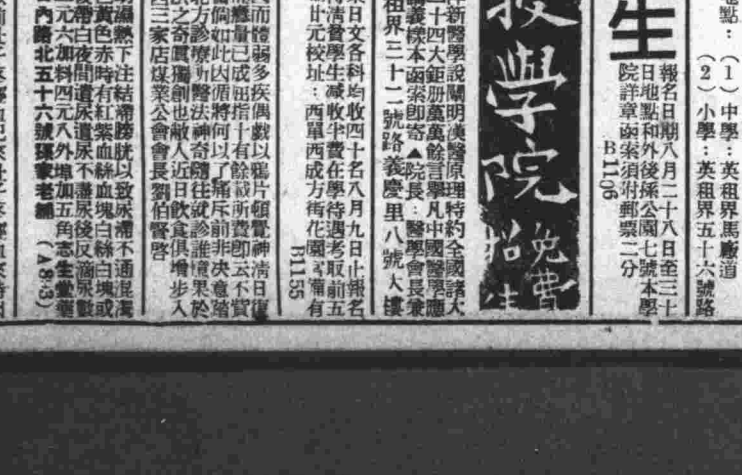 地點：（1）中學：英租界馬廠道
（2）小學：英租界五十六號路
報名日期八月二十八日至三十
日地點和外後孫公園七號本學
院詳章函索須附郵票二分
B1106
生
授學院
免費
招生
新醫學說闡明漢醫原理特約全國諸大
二十四大鉅册萬萬餘言舉凡中國醫學應
講義樣本函索卽寄▲院長：醫學會長兼
租界三十二號路義慶里八號大樓
日文各科均收四十名八月九日止報名
清貧學生減收半費在學待遇考取前五
廿元校址：西單西成方街花園宮備有
B1155
而體弱多疾偶戲以鴉片頓覺神淸日復
癮量已成屈指十有餘載所費卽云不貲
倘如此因循將何以了痛斥前非決意踏
方診療所醫法神奇隨往就診誰憶果於
之奇眞獨創也敝人近日飮食俱增步入
三家店煤業公會會長劉伯賢啓
濕熱下注結滯膀胱以致尿滯不通混濁
黃色赤時有紅紫血絲血塊白絲白塊或
帶白夜間遺尿遺尿不盡尿後又滴尿數
元六加料四元八外埠加五角志生堂藥
內路北五十六號孫家老舖（A8·3）